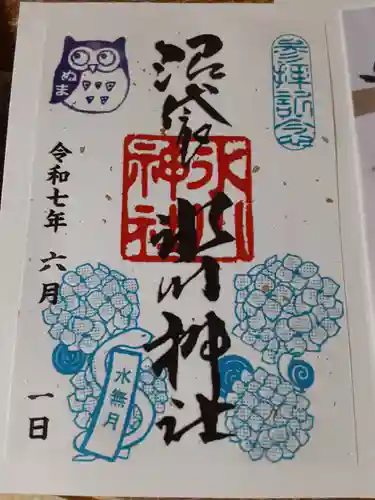 参拝記念
沼袋氷川神社
氷川神社
ぬま
令和七年 六月 一日
水無月